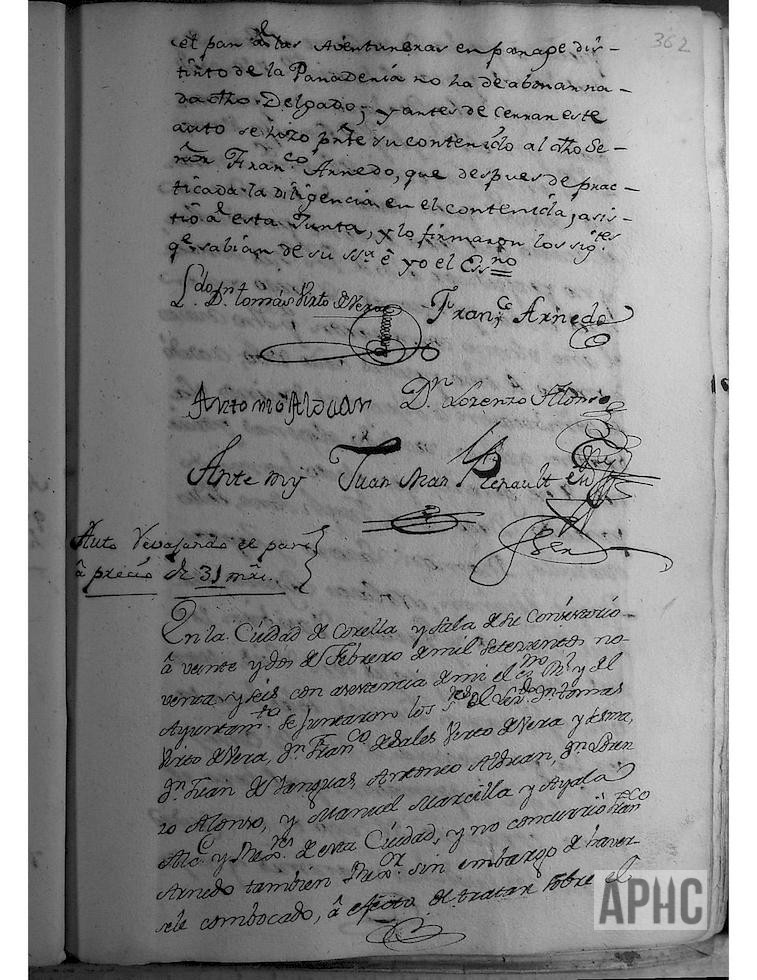 362
el pan a las Aventureras en parage dis-
tinto de la Panaderia no ha de abonar na-
da dho Delgado; y antes de cerrar este
auto se hizo pnte su contenido al dho Se-
ñor Franco Arnedo, que despues de prac-
ticada la diligencia en el contenida, asis-
tio a esta Junta, y lo firmaron los sigtes
qe sabian de su ssa è yo el Essno
Ldo Dn Tomas Virto de Vera Franco Arnedo
Antonio Alduan Dn Lorenzo Alonso
Ante my Juan Man Renault
Auto revajando el pan
à precio de 31 mrs.
En la Ciudad de Corella y Sala de su Consistorio
à veinte y dos de Febrero de mil setecientos no-
venta y seis con asistencia de mi el esno Rl y del
Ayuntamto se juntaron los Sres el Licdo Dn Tomas
Virto de Vera, Dn Franco de Sales Virto de Vera y
Dn Juan de Antonio Alduan, Dn Loren
zo Alonso, y Manuel Marcilla y Ayala
Alce y Rexres de esta Ciudad, y no concurrió Franco
Arnedo tambien Rexor sin embargo de haver
sele combocado, à efecto de tratar sobre el
APHC